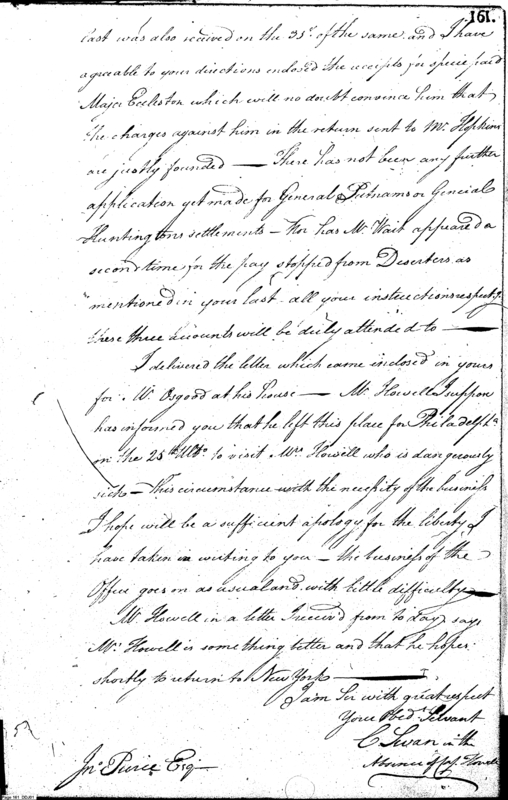 161.
last was also received on the 31st. of the same and I have
agreable to your directions enclosed the receipts for specie paid
Major Eccleston which will no doubt convince him that
the charges against him in the return sent to Mr. Hopkins
are justly founded — There has not been any further
application yet made for General Putnams or General
Huntingtons settlements — Nor has Mr. Wait appeared a
second time for the pay stopped from Deserters as
mentioned in your last — all your instructions respectg.
these three accounts will be duly attended to —
I delivered the letter which came inclosed in yours
for Mr. Osgood at his House — Mr. Howell I suppose
has informed you that he left this place for Philadelpha.
on the 25th. Ulto. to visit Mrs. Howell who is dangerously
sick — This circumstance with the necessity of the business
I hope will be a sufficient apology for the liberty I
have taken in writing to you — the business of the
Office goes on as usual and with little difficulty —
Mr. Howell in a letter I receiv'd from to day says
Mrs. Howell is something better and that he hopes
shortly to return to New York —
I am Sir with great respect
Your Obedt. Servant
C Swan in the
Absence of Howell
Jno. Pierce Esq